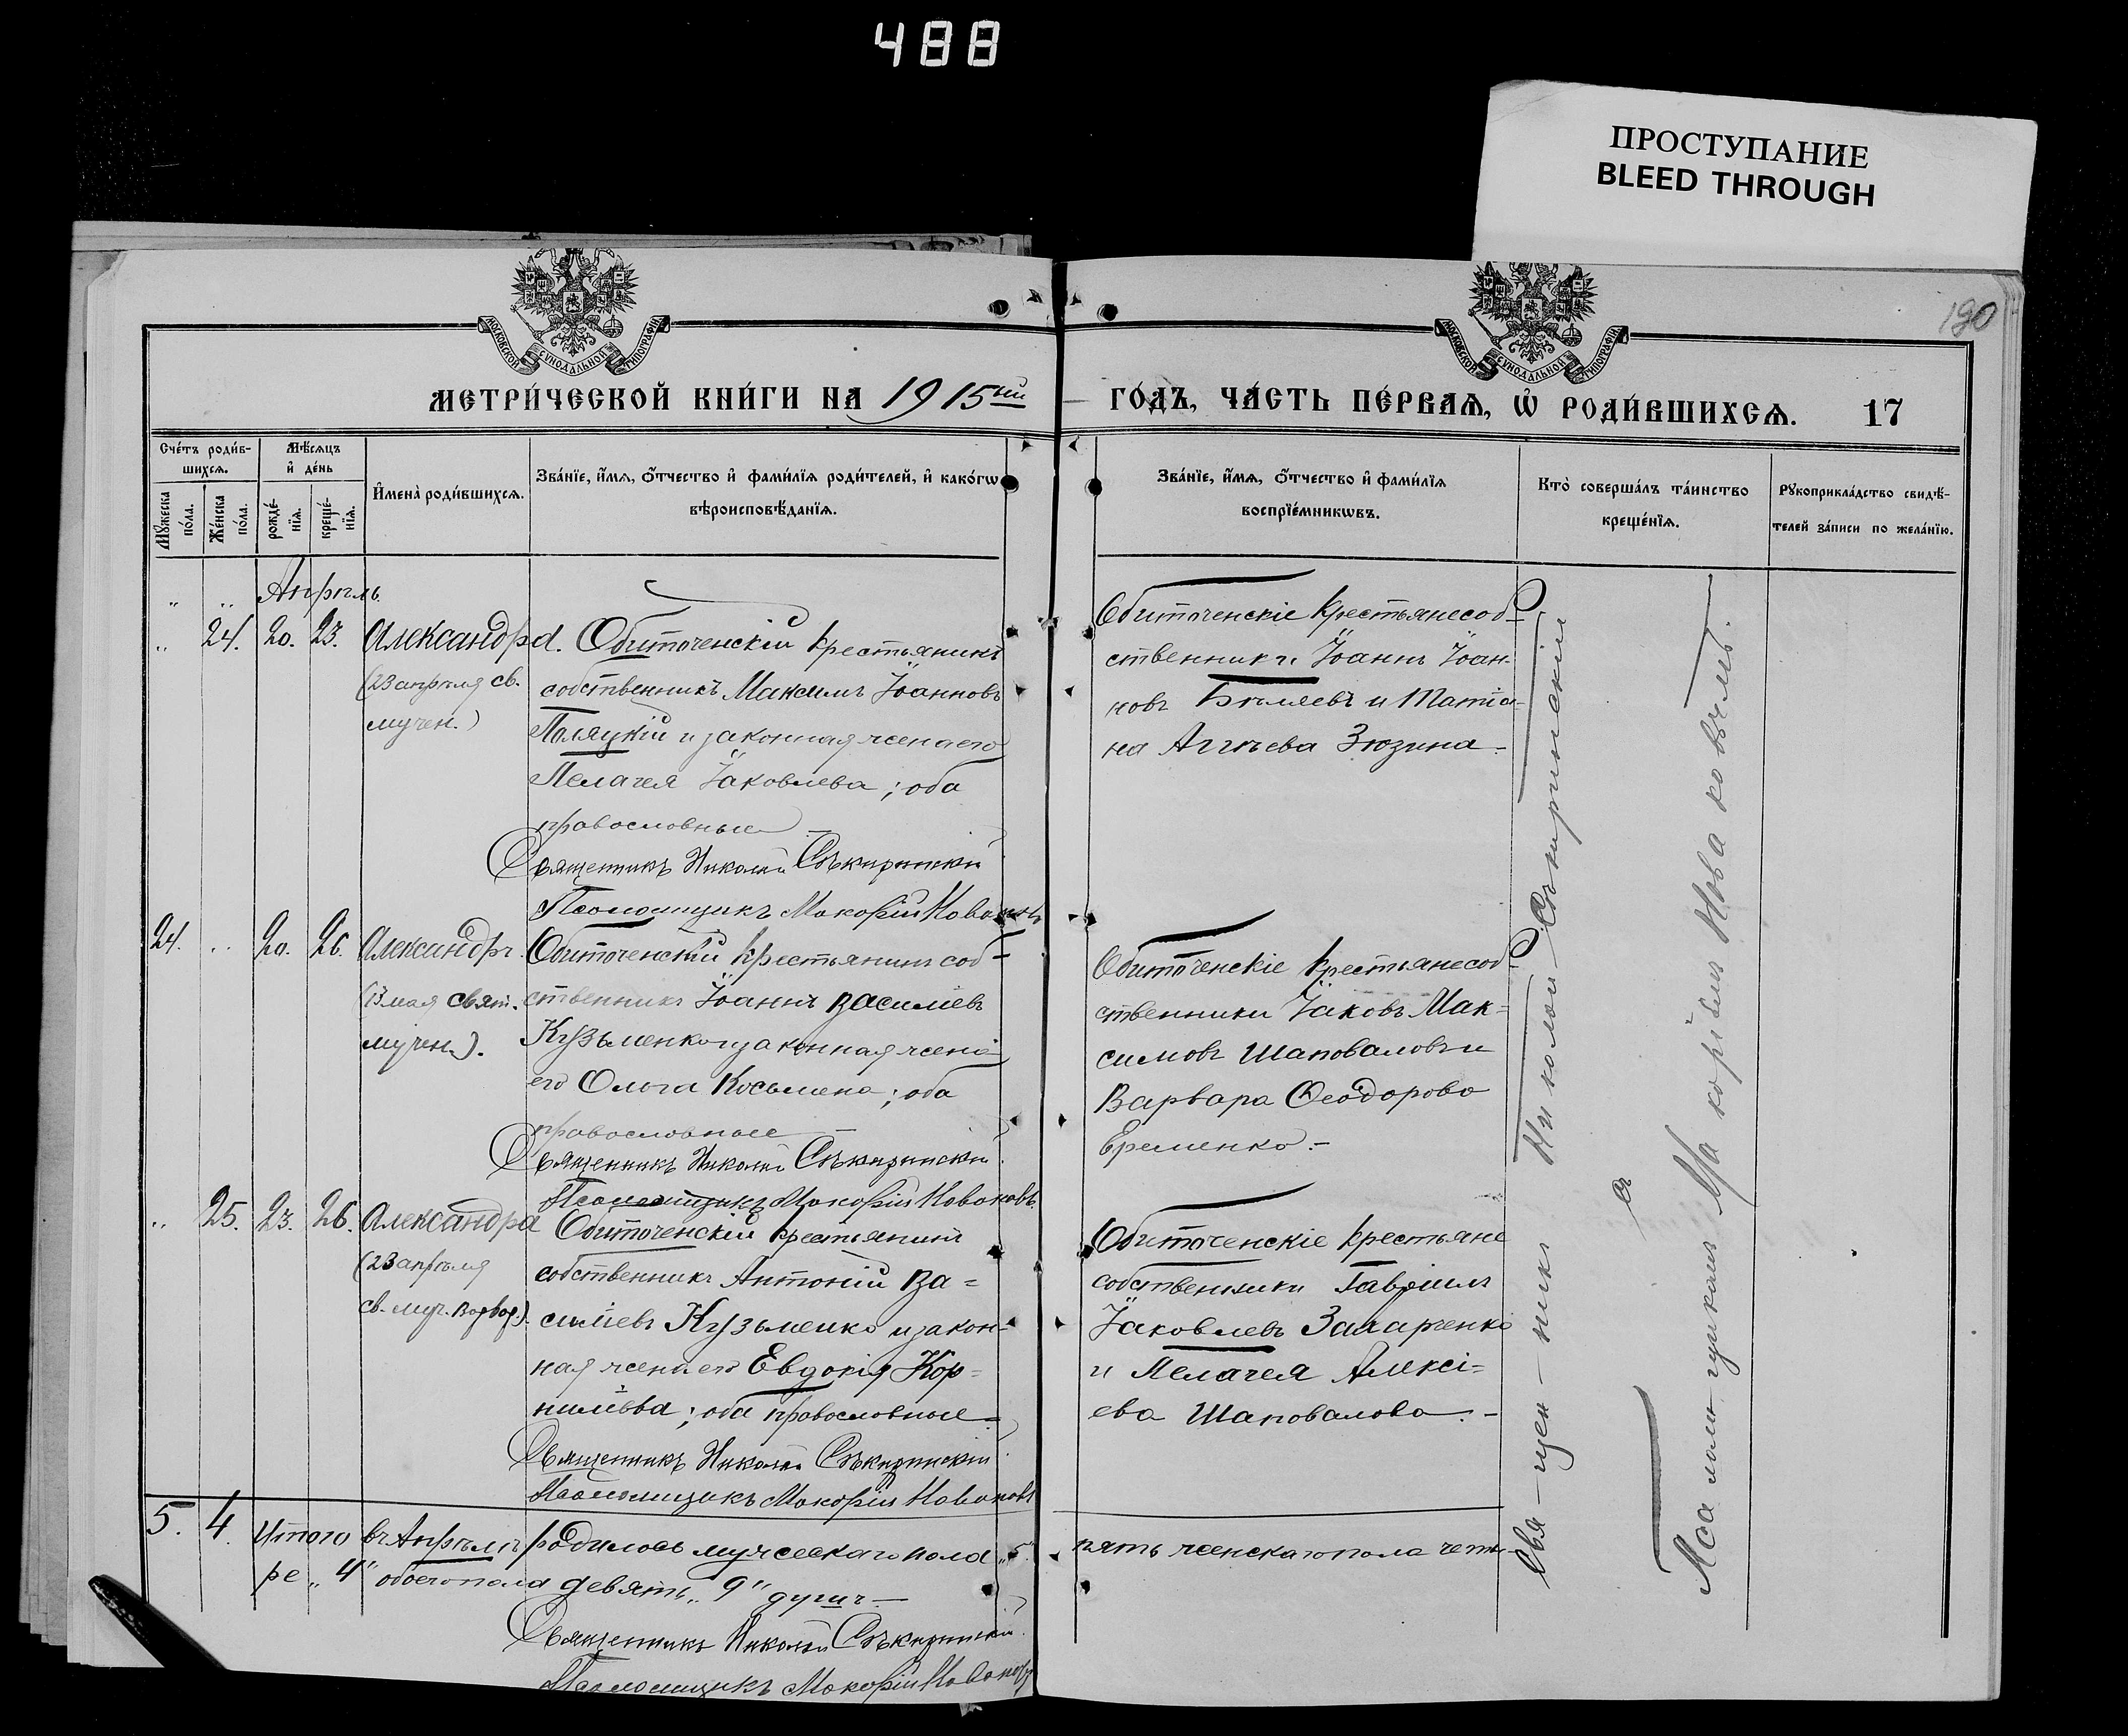 488
ПРОСТУПАНИЕ
BLEED THROUGH
190
МОСКОВСКОЙ СУНОДАЛЬНОЙ ТИПОГРАФІИ
МОСКОВСКОЙ СУНОДАЛЬНОЙ ТИПОГРАФІИ
МЕТРИ́ЧЕСКОЙ КНИ́ГИ НА 1915ый
ГО́ДЪ, ЧА́СТЬ ПЕ́РВАѦ, Ѡ҆ РОДИ́ВШИХСѦ. 17
Сче́тъ роди́в-
шихсѧ.
Мѣ́сѧцъ
и҆ де́нь
Мꙋ́жеска
по́ла.
Же́нска
по́ла.
рожде́-
нїѧ.
креще́-
нїѧ.
И҆мена̀ роди́вшихсѧ.
Зва́нїе, и҆́мѧ, ѻ҆́тчество и҆ фами́лїѧ роди́телей, и҆ како́гѡ
вѣроисповѣ́данїѧ.
Зва́нїе, и҆́мѧ, ѻ҆́тчество и҆ фами́лїѧ
воспрїе́мникѡвъ.
Кто̀ соверша́лъ та́инство
креще́нїѧ.
Рꙋкоприкла́дство свидѣ́-
телей за́писи по жела́нїю.
„ „ Апрѣль.
„ 24. 20. 23. Александра.
(23 апрѣля св.
мучен.)
Обиточенскій крестьянинъ
собственникъ Максимъ Іоанновъ
Поляцкій и законная жена его
Пелагея Іаковлева; оба
православные
Священникъ Николай Сѣкиринскій
Псаломщикъ Макарій Новаковъ
Обиточенскіе крестьяне соб-
ственники Іоаннъ Іоан-
новъ Бѣляевъ и Татіа-
на Аггѣева Зюзина -
24. „ 20. 26. Александръ.
(13 мая свят.
мучен.).
Обиточенскій крестьянинъ соб-
ственникъ Іоаннъ Василіевъ
Кузьменко и законная жена
его Ольга Косьмина; оба
православные -
Священникъ Николай Сѣкиринскій
Псаломщикъ Макарій Новаковъ.
Обиточенскіе крестьяне соб-
ственники Іаковъ Мак-
симовъ Шаповаловъ и
Варвара Ѳеодорова
Еременко. -
„ 25. 23. 26. Александра
(23 апрѣля
св. муч.
Обиточенскій крестьянинъ
собственникъ Антоній Ва-
силіевъ Кузьменко и закон-
ная жена его Евдокія Кор-
ниліева; оба православные -
Священникъ Николай Сѣкиринскій
Псаломщикъ Макарій Новаковъ
Обиточенскіе крестьяне
собственники Гавріилъ
Іаковлевъ
и Пелагея Алексі-
ева Шаповалова. -
5. 4. Итого въ Апрѣлѣ родилось мужескаго пола „5" пять женскаго пола четы-
ре „4" обоего пола девять „9" душъ -
Священникъ Николай Сѣкиринскій
Псаломщикъ Макарій Новаковъ
Свя-щен-никъ Николай Сѣкиринскій
съ
Псаломщикомъ Макаріемъ Новаковымъ.